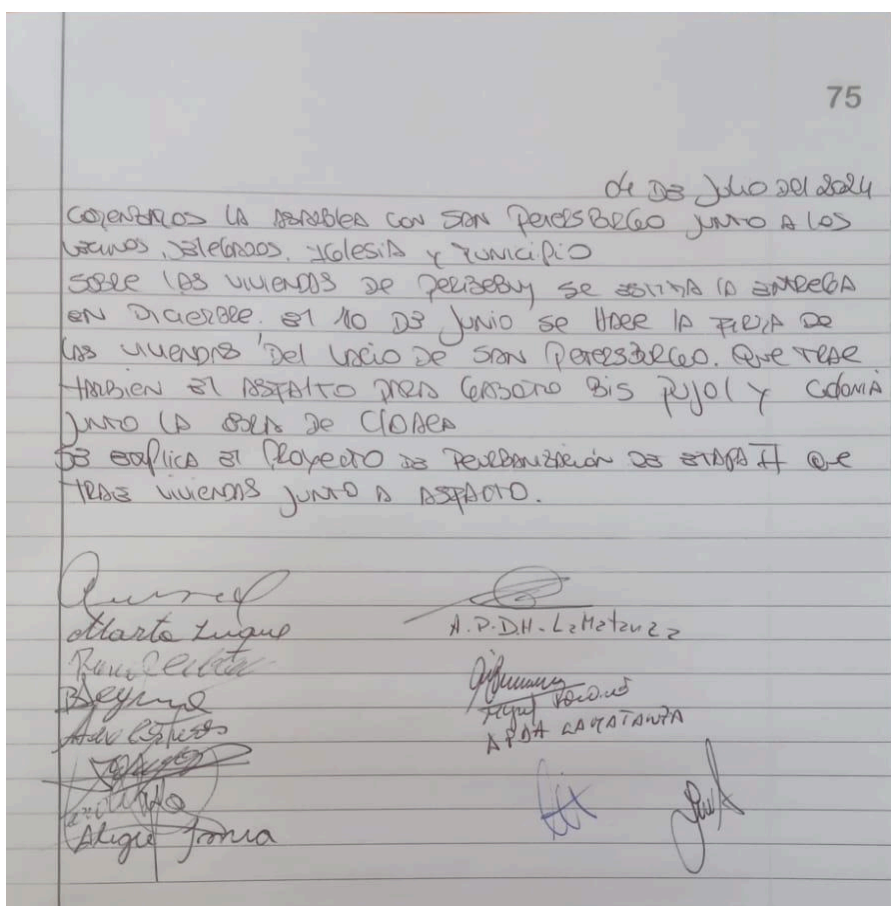 75
04 DE Julio Del 2024
COMENZAMOS LA ASAMBLEA CON SAN PETERSBURGO JUNTO A LOS
VECINOS, DELEGADOS, IGLESIA Y MUNICIPIO
SOBRE LAS VIVIENDAS DE PERIBEBUY SE ESTIMA LA ENTREGA
EN DICIEMBRE. El 10 DE JUNIO SE HACE LA FIRMA DE
LAS VIVIENDAS Del VACIO DE SAN PETERSBURGO. QUE TRAE
TAMBIEN El ASFALTO PARA BIS PUJOL Y COLONIA
JUNTO LA OBRA DE CLOACA
SE EXPLICA El PROYECTO DE REURBANIZACIÓN DE ETAPA II QUE
TRAE VIVIENDAS JUNTO A ASFALTO.
Marta Luque
A.P.D.H. - La Matanza
APDH LA MATANZA